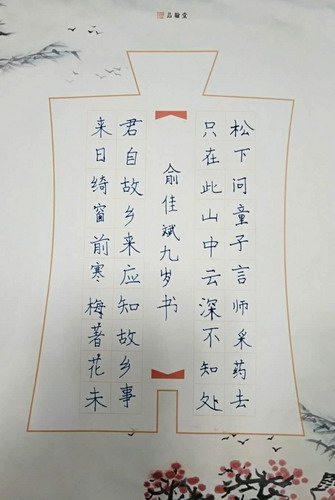 品翰堂
松下问童子言师采药去
只在此山中云深不知处
俞佳斌九岁书
君自故乡来应知故乡事
来日绮窗前寒梅著花未